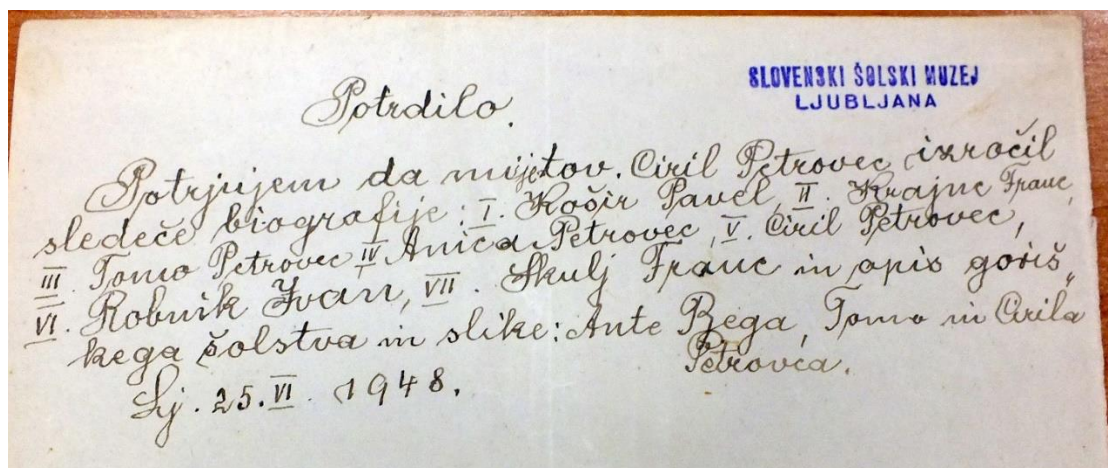 SLOVENSKI ŠOLSKI MUZEJ
LJUBLJANA
Potrdilo.
Potrjujem da mi je tov. Ciril Petrovec izročil
sledeče biografije: I. Košir Pavel, II. Krajnc Franc,
III. Tomo Petrovec IV Anica Petrovec, V. Ciril Petrovec,
VI. Robnik Ivan, VII. Skulj Franc in opis goriš„
kega šolstva in slike: Ante Bega, Tomo in Cirila
Petrovca.
Lj. 25. VI. 1948.